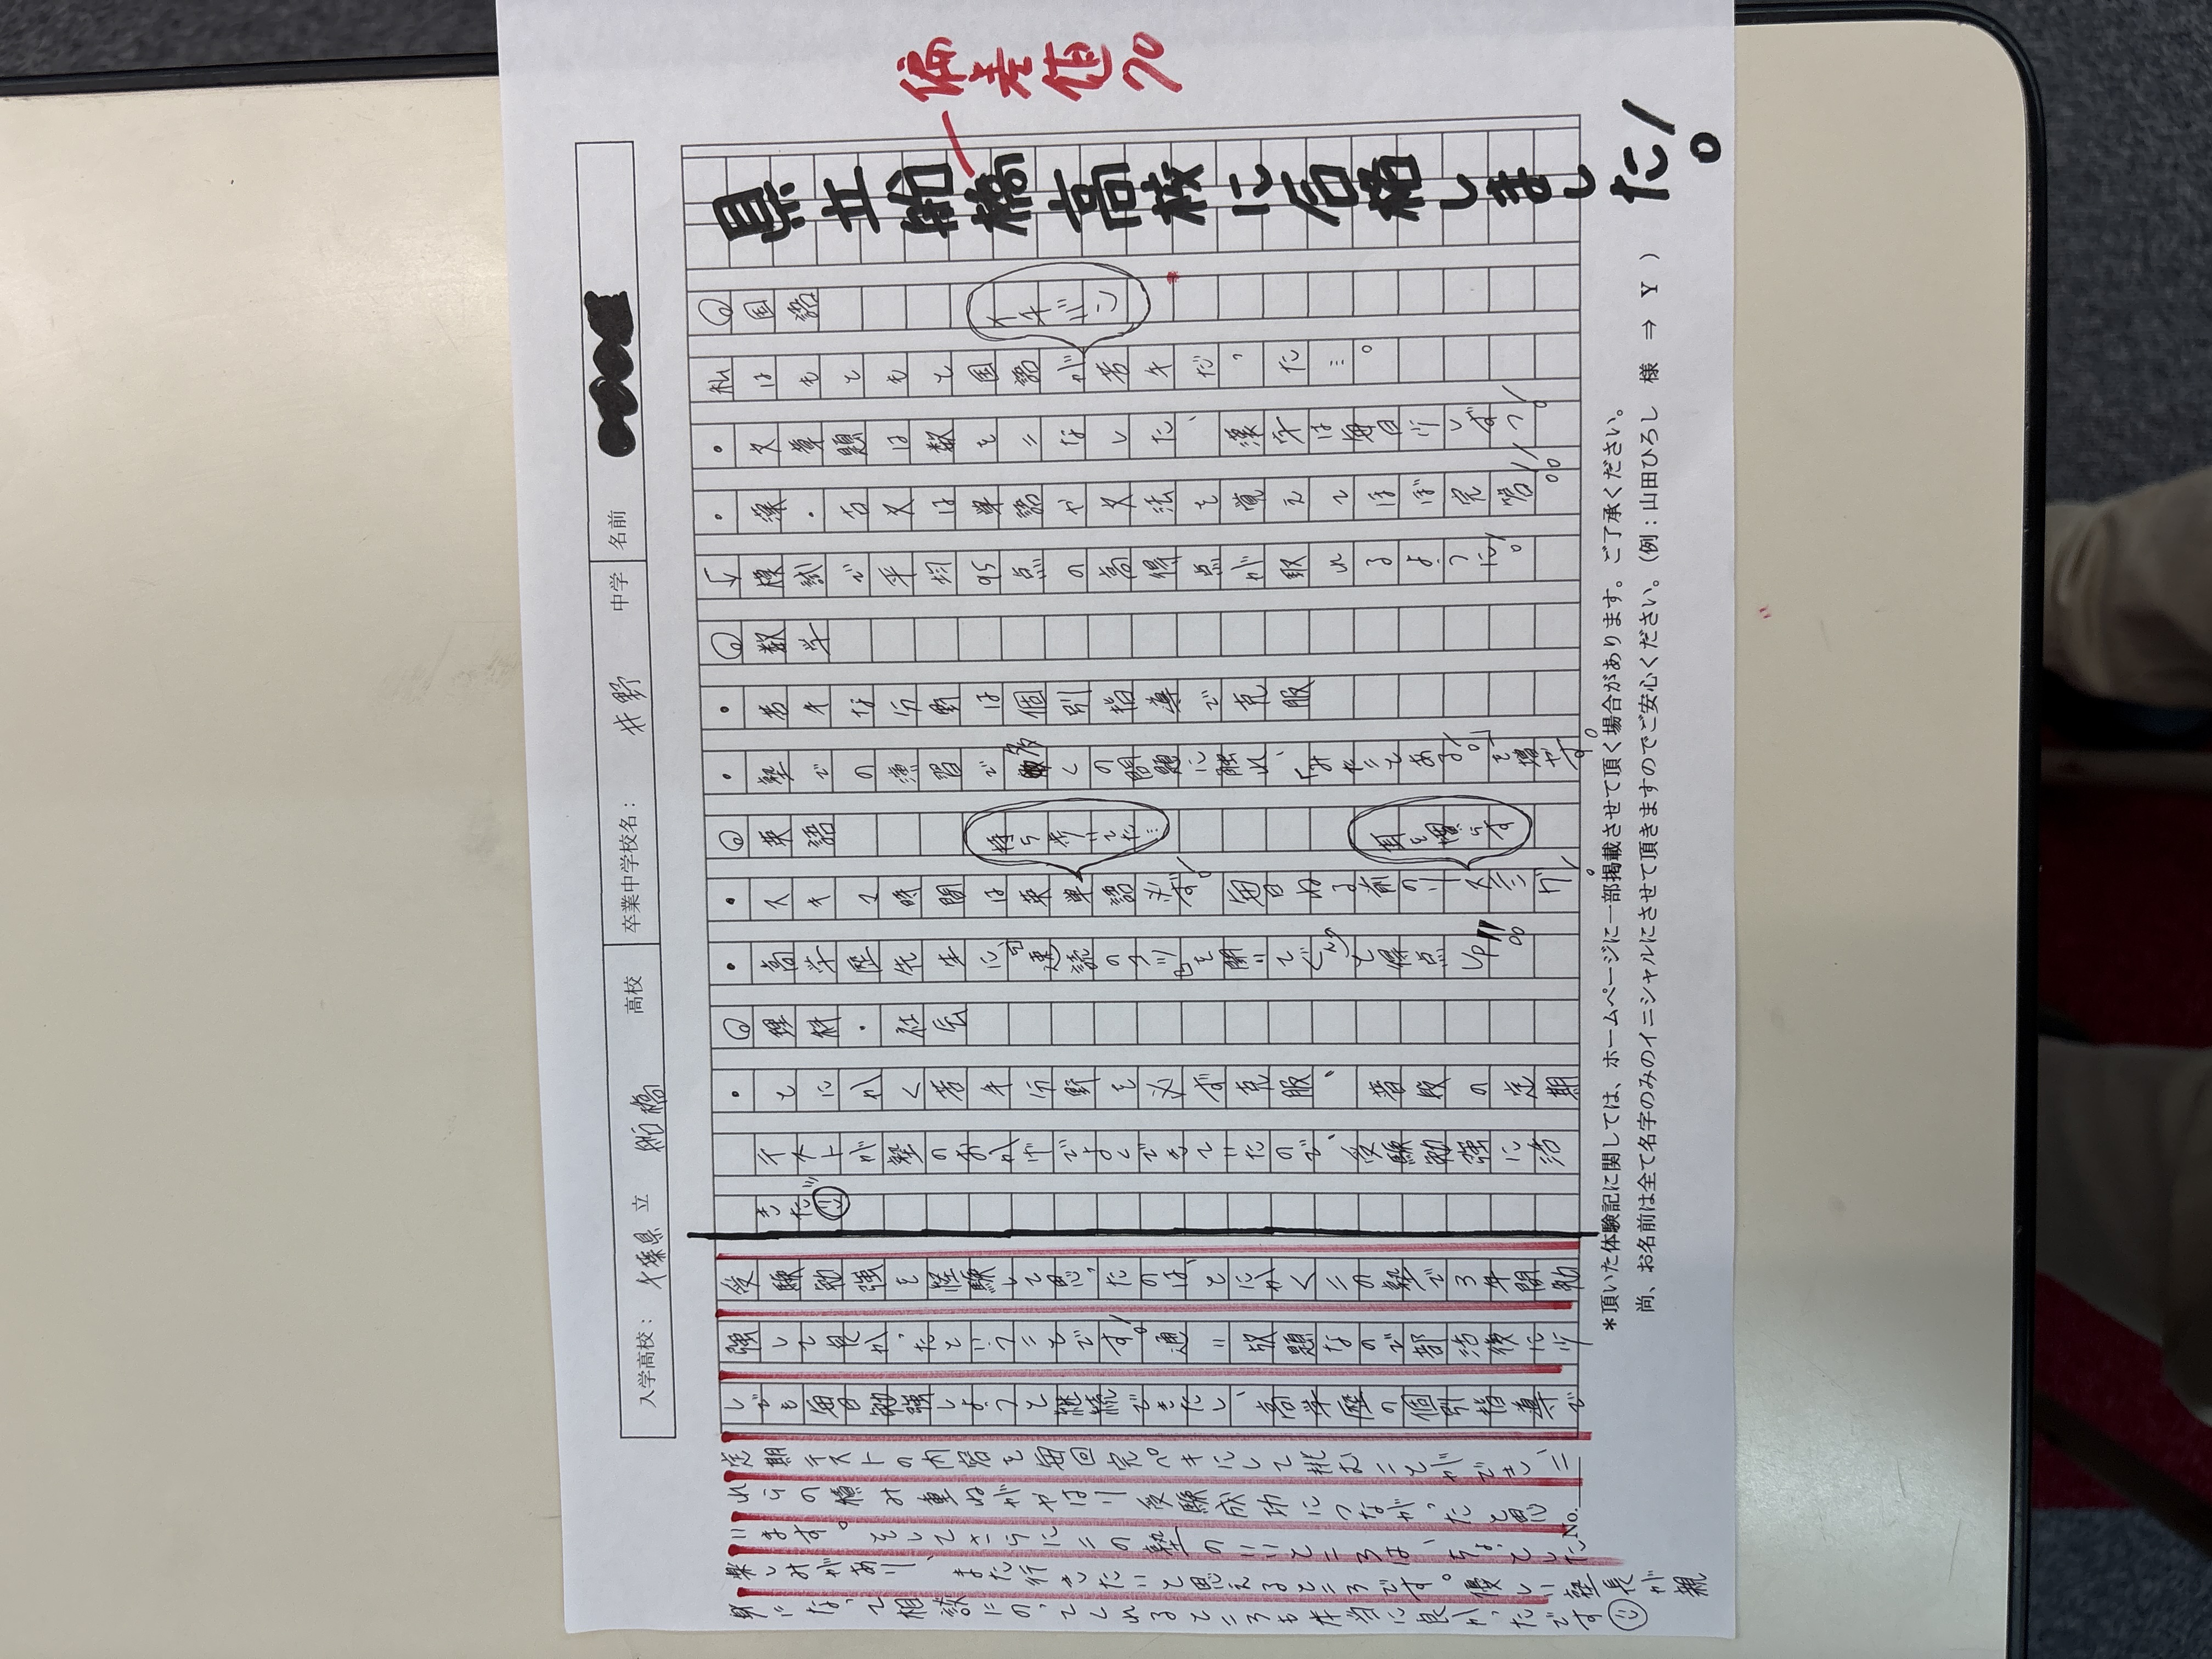 偏差値70
入学高校： 千葉県 立 船橋 高校
卒業中学校名： 井野 中学
名前
県立船橋高校に合格しました！
◎国語
私はもともと国語が苦手だった…。
イチバン
・文章題は数をこなした、漢字は毎日少しずつ！
・漢・古文は単語や文法を覚えてほぼ完答！！
↳模試で平均95点の高得点が取れるように！
◎数学
・苦手な分野は個別指導で克服
・塾での演習で多くの問題に触れ、「みたことある！」を増やす。
◎英語
持ち歩いてた…
耳を慣らす
・スキマ時間は英単語必ず！毎日ねる前のリスニング！
・高学歴先生に『速読のコツ』を聞いてぐんっと得点UP!!
◎理科・社会
・とにかく苦手分野を必ず克服、普段の定期
テストが塾のおかげでよくできていたので、受験勉強に活
きた!!
受験勉強を経験して思ったのは、とにかくこの塾で3年間勉
強して良かったということです！通い放題なので部活後に少
しでも毎日勉強しようと継続できたし、高学歴の個別指導で
定期テストの内容を毎回完ペキにして挑むことができ、こ
れらの積み重ねがやはり受験成功につながったと思
います。そしてさらにこの塾のいいところは、ちょっとした
楽しみがあり、また行きたいと思えるところです。優しい塾長が親
身になって相談にのってくれるところも本当に良かったです
No.
＊頂いた体験記に関しては、ホームページに一部掲載させて頂く場合があります。ご了承ください。
尚、お名前は全て名字のみのイニシャルにさせて頂きますのでご安心ください。（例：山田ひろし 様 ⇒ Y ）